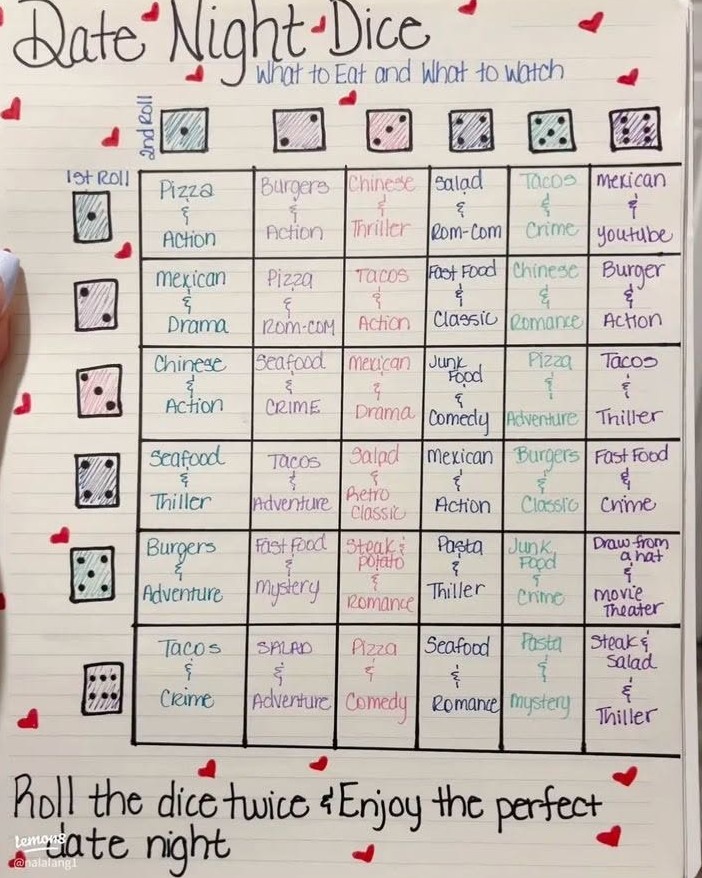 Date Night Dice
What to Eat and What to Watch
2nd Roll
1st Roll
Pizza & Action
Burgers & Action
Chinese & Thriller
Salad & Rom-Com
Tacos & Crime
Mexican & Youtube
Mexican & Drama
Pizza & ROM-COM
Tacos & Action
Fast Food & Classic
Chinese & Romance
Burger & Action
Chinese & Action
Seafood & CRIME
Mexican & Drama
Junk Food & Comedy
Pizza & Adventure
Tacos & Thiller
Seafood & Thiller
Tacos & Adventure
Salad & Retro Classic
Mexican & Action
Burgers & Classic
Fast Food & Crime
Burgers & Adventure
Fast Food & Mystery
Steak & Potato & Romance
Pasta & Thiller
Junk Food & Crime
Draw from a hat & Movie Theater
Tacos & Crime
SALAD & Adventure
Pizza & Comedy
Seafood & Romance
Pasta & Mystery
Steak & Salad & Thiller
Roll the dice twice & Enjoy the perfect
date night
lemon8
@nalalang1